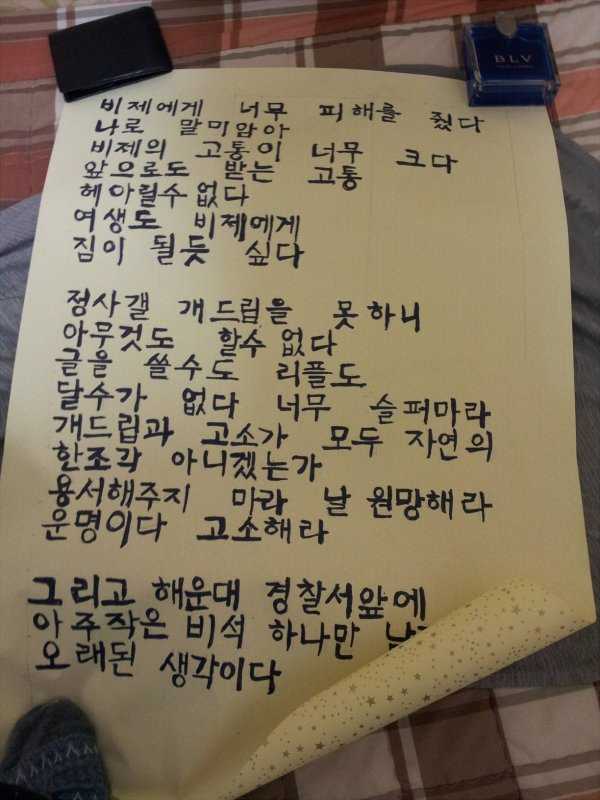 BLV
비제에게 너무 피해를 줬다
나로 말미암아
비제의 고통이 너무 크다
앞으로도 받는 고통
헤아릴수 없다
여생도 비제에게
짐이 될듯 싶다
정사갤 개드립을 못하니
아무것도 할수 없다
글을 쓸수도 리플도
달수가 없다 너무 슬퍼마라
개드립과 고소가 모두 자연의
한조각 아니겠는가
용서해주지 마라 날 원망해라
운명이다 고소해라
그리고 해운대 경찰서앞에
아주작은 비석 하나만
오래된 생각이다